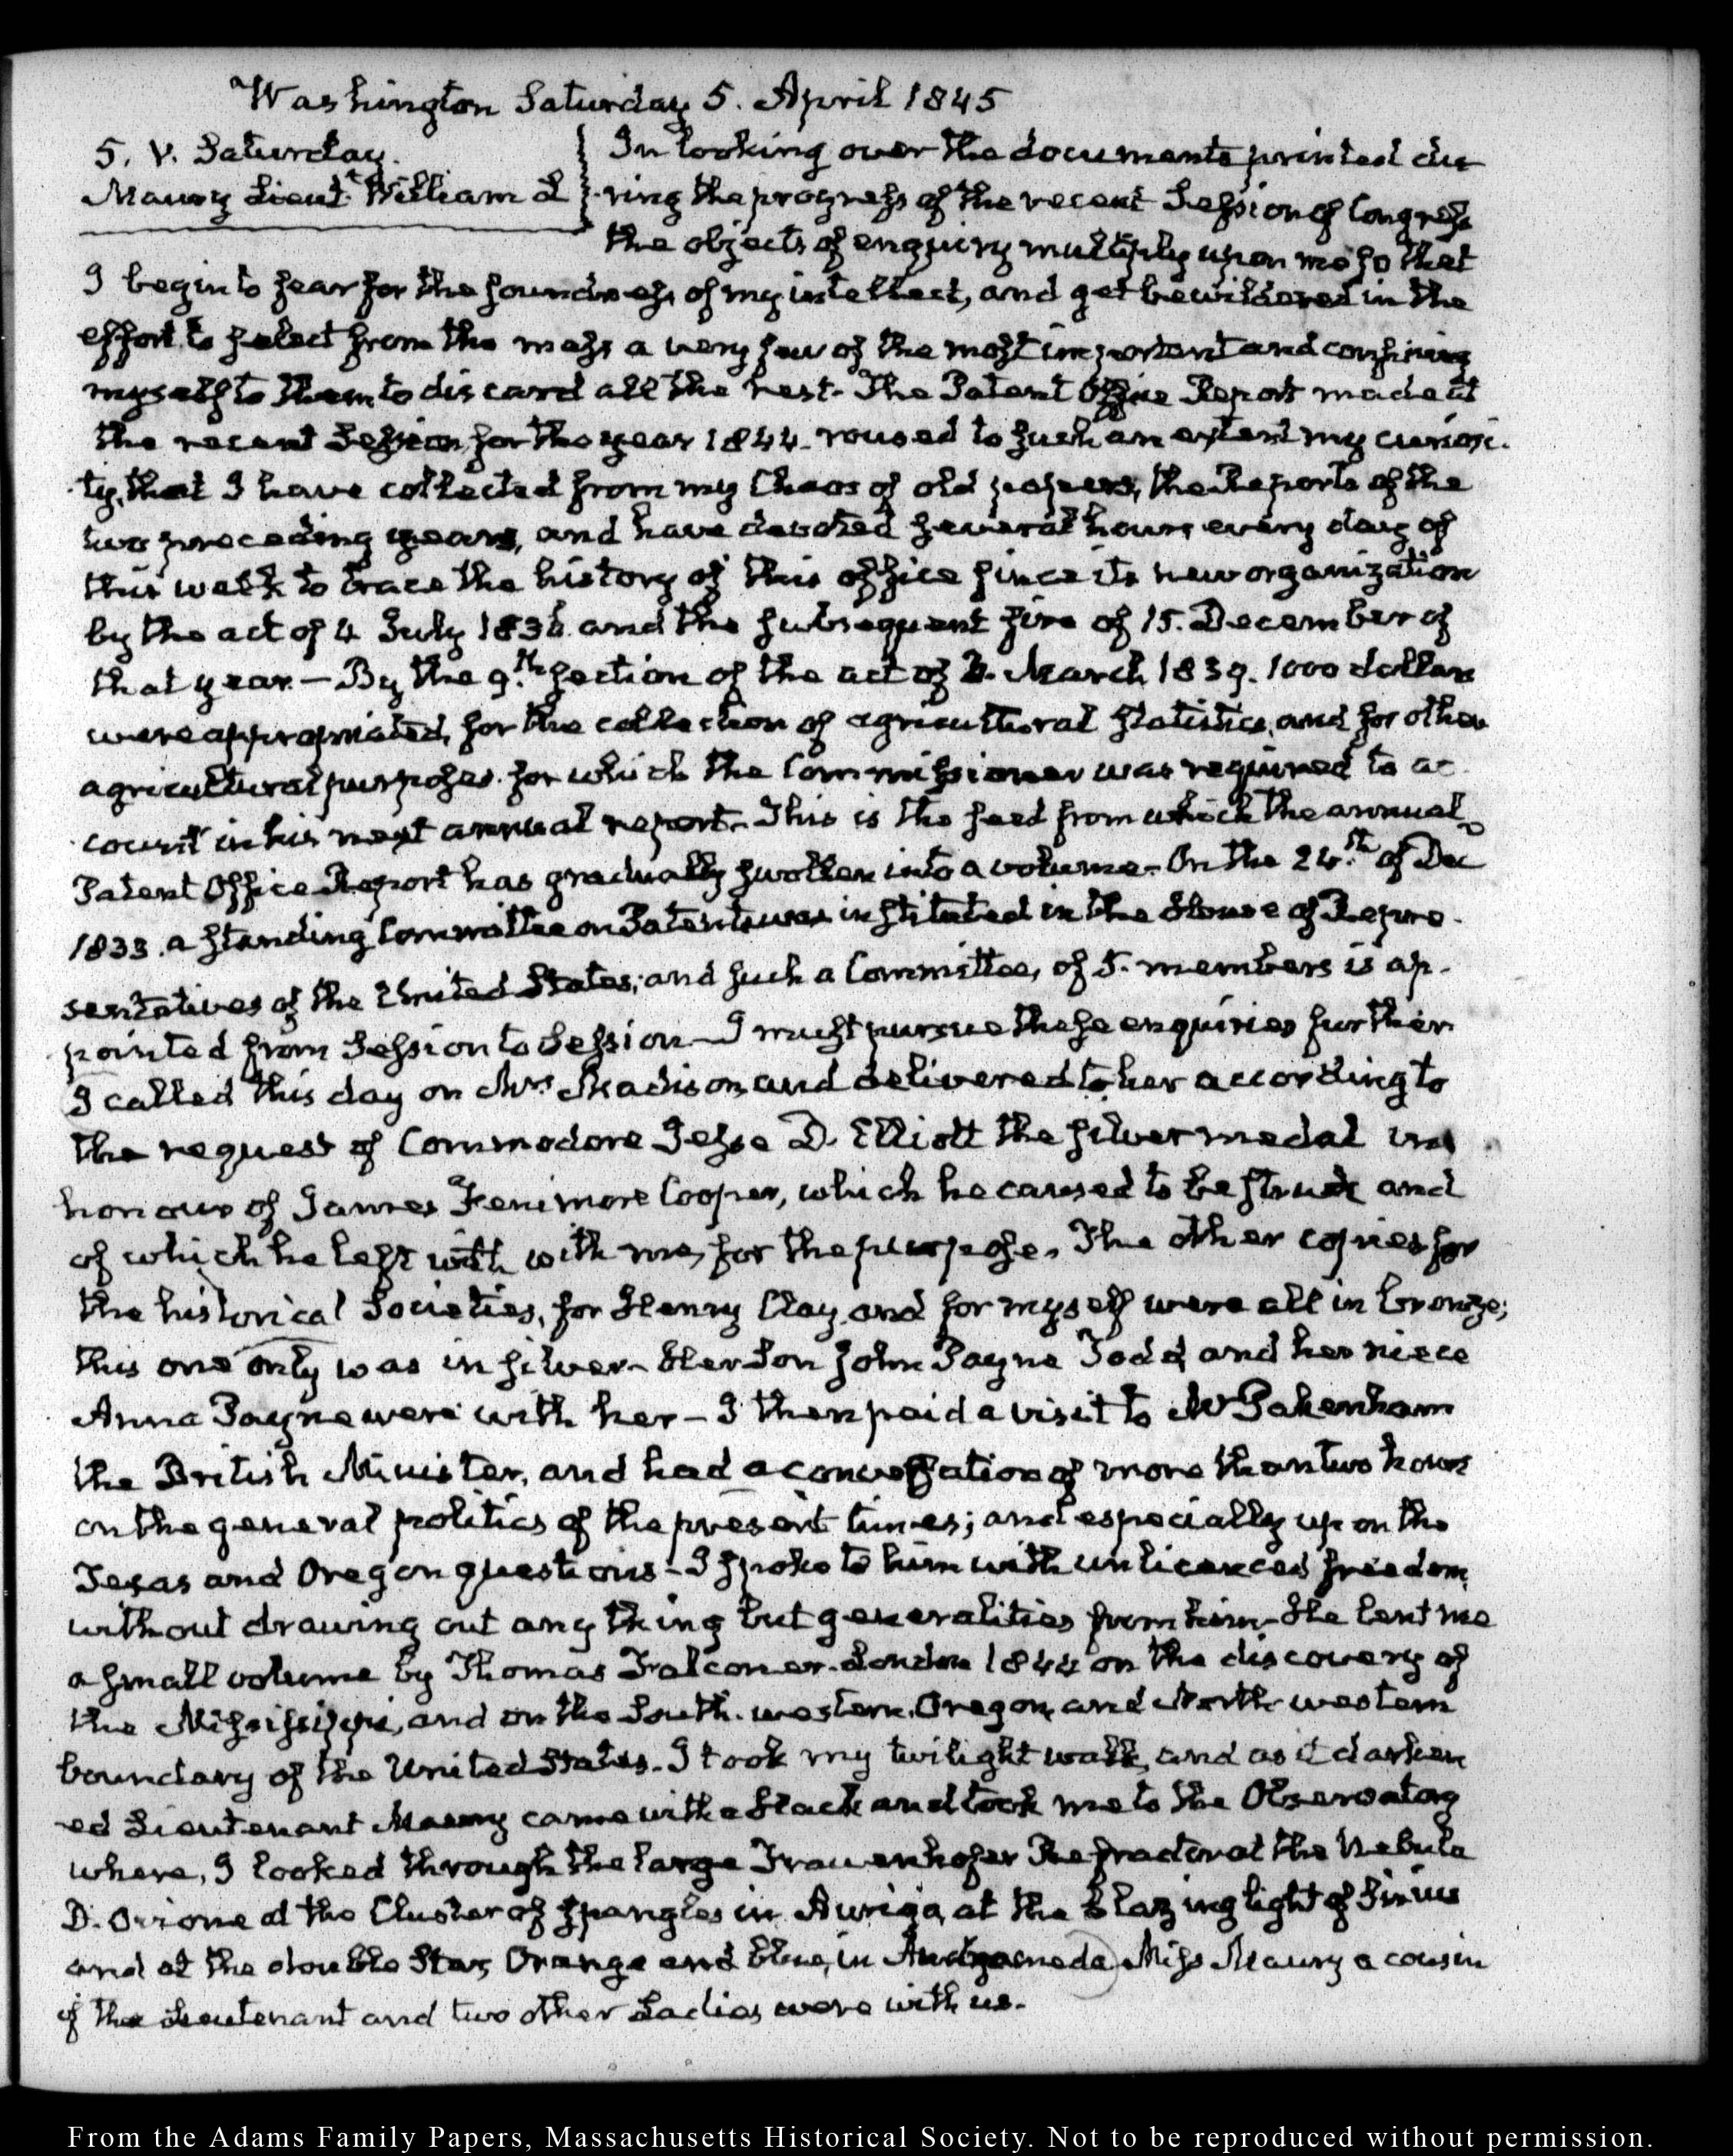 Washington Saturday 5. April 1845
5. V. Saturday.
Maury Lieut.t William L
In looking over the documents printed du
ring the progress of the recent Session of Congress
the objects of enquiry multiply upon me so that
I begin to fear for the soundness of my intellect, and get bewildered in the
effort to select from the mass a very few of the most important and confining
myself to them to discard all the rest. The Patent Office Report made at
the recent Session, for the year 1844. roused to such an extent my curiosi-
ty, that I have collected from my Chaos of old papers, the Reports of the
two preceding years, and have devoted several hours every day of
this week to trace the history of this office since its new organization
by the act of 4 July 1836 and the subsequent fire of 15. December of
that year. — By the 9.th section of the act of 3. March 1839. 1000 dollars
were appropriated, for the collection of agricultural statistics, and for other
agricultural purposes. for which the Commissioner was required to ac-
count in his next annual report. This is the seed from which the annual
Patent Office Report has gradually swollen into a volume - On the 24.th of Dec
1833. a standing Committee on Patents was instituted in the House of Repre-
sentatives of the United States; and such a Committee, of 5. members is ap-
pointed from Session to Session - I must pursue these enquiries further
I called this day on Mrs. Madison and delivered to her according to
the request of Commodore Jesse D. Elliott the silver medal in
honour of James Fenimore Cooper, which he caused to be struck and
of which he left with with me, for the purpose. The other copies for
the historical Societies, for Henry Clay and for myself were all in bronze;
this one only was in silver - Her Son John Payne Todd and her niece
Anna Payne were with her - I then paid a visit to Mr Pakenham
the British Minister, and had a conversation of more than two hours
on the general politics of the present times; and especially upon the
Texas and Oregon questions - I spoke to him with unlicenced freedom,
without drawing out any thing but generalities from him - He lent me
a small volume by Thomas Falconer. London 1844 on the discovery of
the Mississippi, and on the South-western, Oregon, and North-western
boundary of the United States. I took my twilight walk, and as it darken
ed Lieutenant Maury came with a Hack and took me to the Observatory
where, I looked through the large Frauenhofer Refractor at the Nebula
D. Orione at the Cluster of spangles in Auriga, at the blazing light of Sirius
and at the double Star, Orange and blue, in Andromeda Miss Maury a cousin
of the Lieutenant and two other Ladies were with us.
From the Adams Family Papers, Massachusetts Historical Society. Not to be reproduced without permission.